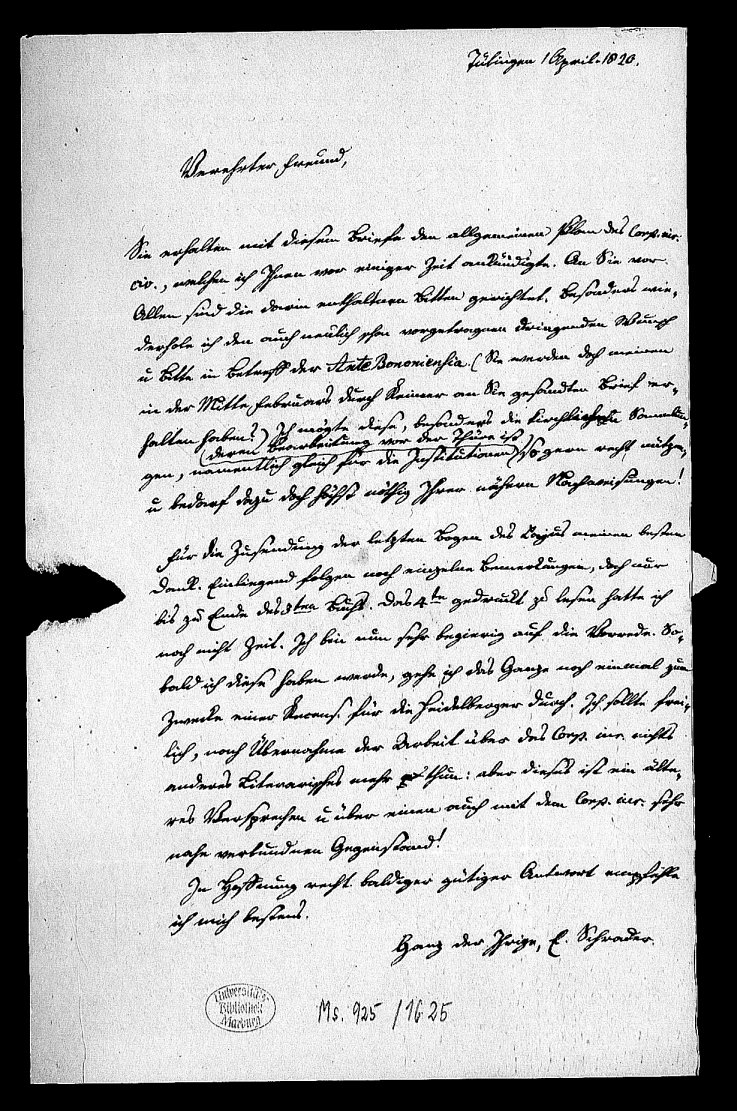 Tübingen 1 April. 1820.
Verehrter Freund,
Sie erhalten mit diesem Briefe den allgemeinen Plan des Corp. iur.
civ., welchen ich Ihnen vor einiger Zeit ankündigte. An Sie vor
Allen sind die darin enthaltnen Bitten gerichtet. Besonders wie-
derhole ich den auch neulich schon vorgetragnen dringenden Wunsch
u Bitte in Betreff der AnteBononiensia. (Sie werden doch meinen
in der Mitte Februars durch Keiner an Sie gesandten Brief er-
halten haben?) Ich mögte diese, besonders die kirchlichen Sammlun-
(deren Bearbeitung vor der Thüre ist)
gen, namentlich gleich für die Institutionen so gern recht nützen,
u bedarf dazu doch höchst nöthig Ihrer nähern Nachweisungen!
Für die Zusendung der letzten Bogen des Gajus meinen besten
Dank. Einliegend folgen noch einzelne Bemerkungen, doch nur
bis zu Ende des 3ten Buchs. Das 4te gedruckt zu lesen hatte ich
noch nicht Zeit. Ich bin nun sehr begierig auf die Vorrede. So-
bald ich diese haben werde, gehe ich das Ganze noch einmal zum
Zwecke einer Recens. für die Heidelberger durch. Ich sollte frei-
lich, nach Übernahme der Arbeit über das Corp. iur. nichts
anderes Literarisches mehr thun: aber dieses ist ein älte-
res Versprechen u über einen auch mit dem Corp. iur. sehr
nahe verbundnen Gegenstand!
In Hoffnung recht baldiger gütiger Antwort empfehle
ich mich bestens.
Ganz der Ihrige, E. Schrader.
Universitäts-
Bibliothek
Marburg
Ms. 925 / 1625